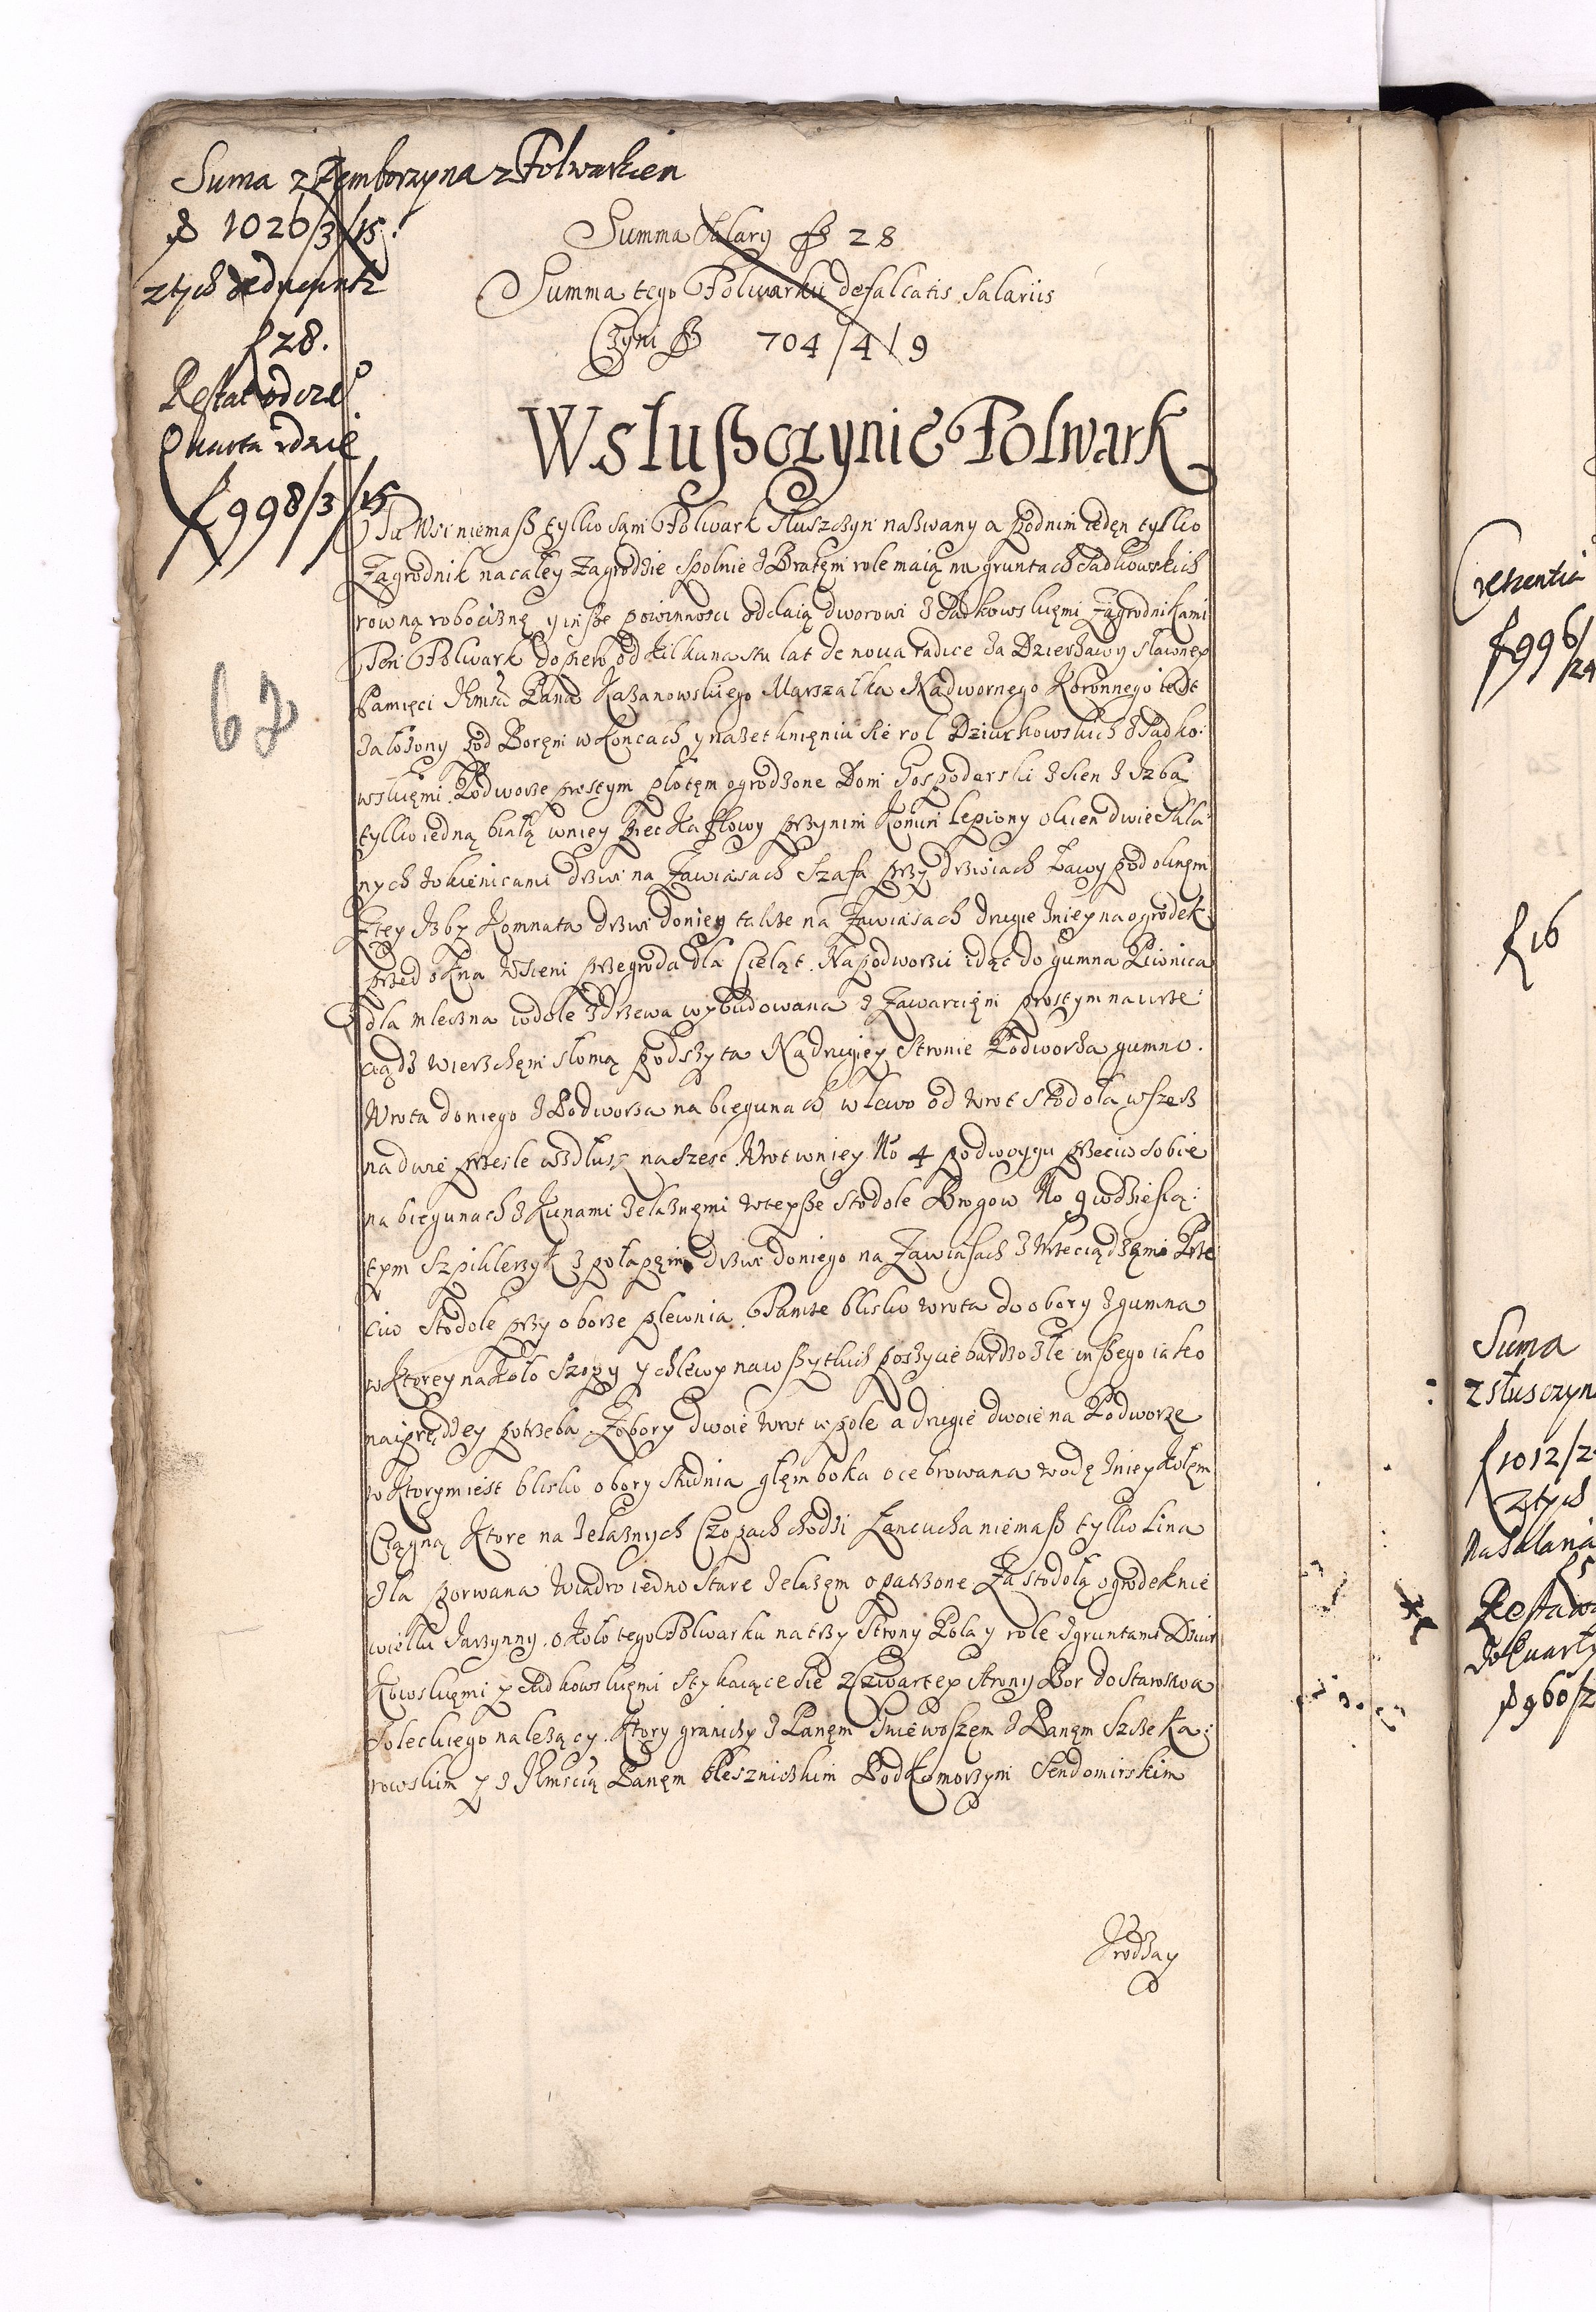 Suma z Zemborzyna z Folwarkiem
fl 1026/3/15.
z tych deducuntr
f 28.
Restat od czeº
Quarta idzie
f 998/3/15
62
Summa Salary fl 28
Summa tego Folwarku defalcatis Salariis
Czyni fl 704/4/9
W Slußczynie Folwark
Tu Wsi niemaß tylko sam Folwark Słuszczyn nazwany a pod nim ieden tylko
Zagrodnik na całey Zagrodzie spolnie z Bratęm role maią na gruntach Sadkowskich
rowną robociznę y inße powinnosci oddaią dworowi z Sadkowskięmi Zagrodnikami
Ten Folwark dopiero od kilkunastu lat de nova radice za Dzierzawy sławney
Pamięci Jkmsci Pana Kazanowskiego Marszałka Nadwornego Koronnego iest
załozony pod Boręm w koncach y na zetknięniu sie rol Dziurkowskich z Sadko:
wskięmi. Podworze prostym płotęm ogrodzone Dom Gospodarski z Sien z Izbą
tylko iedną białą w niey piec kaflowy przy nim komin lepiony okien dwie szkla:
nych z okienicami drzwi na Zawiasach Szafa przy drzwiach Ławy pod oknem
Z tey Izby Komnata drzwi do niey takze na Zawiasach drugie z niey na ogrodek
przed okna W Sieni przegroda dla Cieląt. Na podworzu idąc do gumna Piwnica
dla mleczna w dole z drzewa wybudowana z Zawarcięm prostym na wrze:
ciądz wierzchęm słomą podszyta Na drugiey Stronie Podworza gumno.
Wrota do niego z Podworza na biegunach w lewo od Wrot Stodoła wszerz
na dwie przesle wzdłusz na szesc Wrot w niey No 4 podwoygu przeciw sobie
na biegunach z Kunami zelaznęmi w teyße Stodole Brogow No 9 w dziesią:
tym Szpiklerzyk z połapęm drzwi do niego na Zawiasach z Wrzeciądzęmi Prze
ciw Stodole przy oborze plewnia. Tamze blisko wrota do obory z gumna
w ktorey na koło Szopy y chlewy na wßytkich poszycie bardzo złe inßego iako
naiprędzey potrzeba. Z obory dwoie Wrot w pole a drugie dwoie na Podworze
w ktorym iest blisko obory Studnia głęmboka ocebrowana wodę z niey kołęm
Ciągną ktore na zelaznych Czopach chodzi Łancucha niemaß tylko Lina
zła porwana Wiadro iedno stare zelazęm opatrzone Za stodołą ogrodek nie
wielki Jarzynny. około tego Folwarku na trzy Strony Pola y role z gruntami Dziur
kowskięmi y Sadkowskięmi stykaiące sie z Czwartey strony Bor do Starostwa
Soleckiego nalezący. Ktory graniczy z Panęm Gniewoszęm z Panęm Szczeka:
rowskim y z Jkmscią Panęm Olesznickim Podkomorzym Sendomirskim
Vrodzay
Crescentia
f 996/24
f 16
Suma
z słusczyn
f 1012/2
z tych
Na Salaria
Restaw
do kwarty
fl 960/2